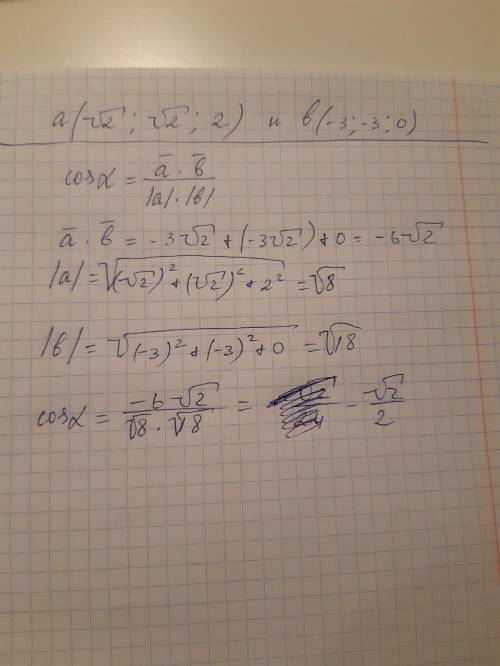 a(√2; √2; 2) и b(-3; -3; 0)
cosα = a̅ · b̅ / |a| · |b|
a̅ · b̅ = -3√2 + (-3√2) + 0 = -6√2
|a| = √((√2)² + (√2)² + 2²) = √8
|b| = √((-3)² + (-3)² + 0) = √18
cosα = -6√2 / √8 · √18 = - √2 / 2